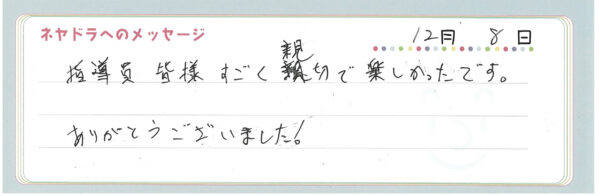 ネヤドラへのメッセージ
12月 8日
指導員 皆様 すごく親切で 楽しかったです。
ありがとうございました!